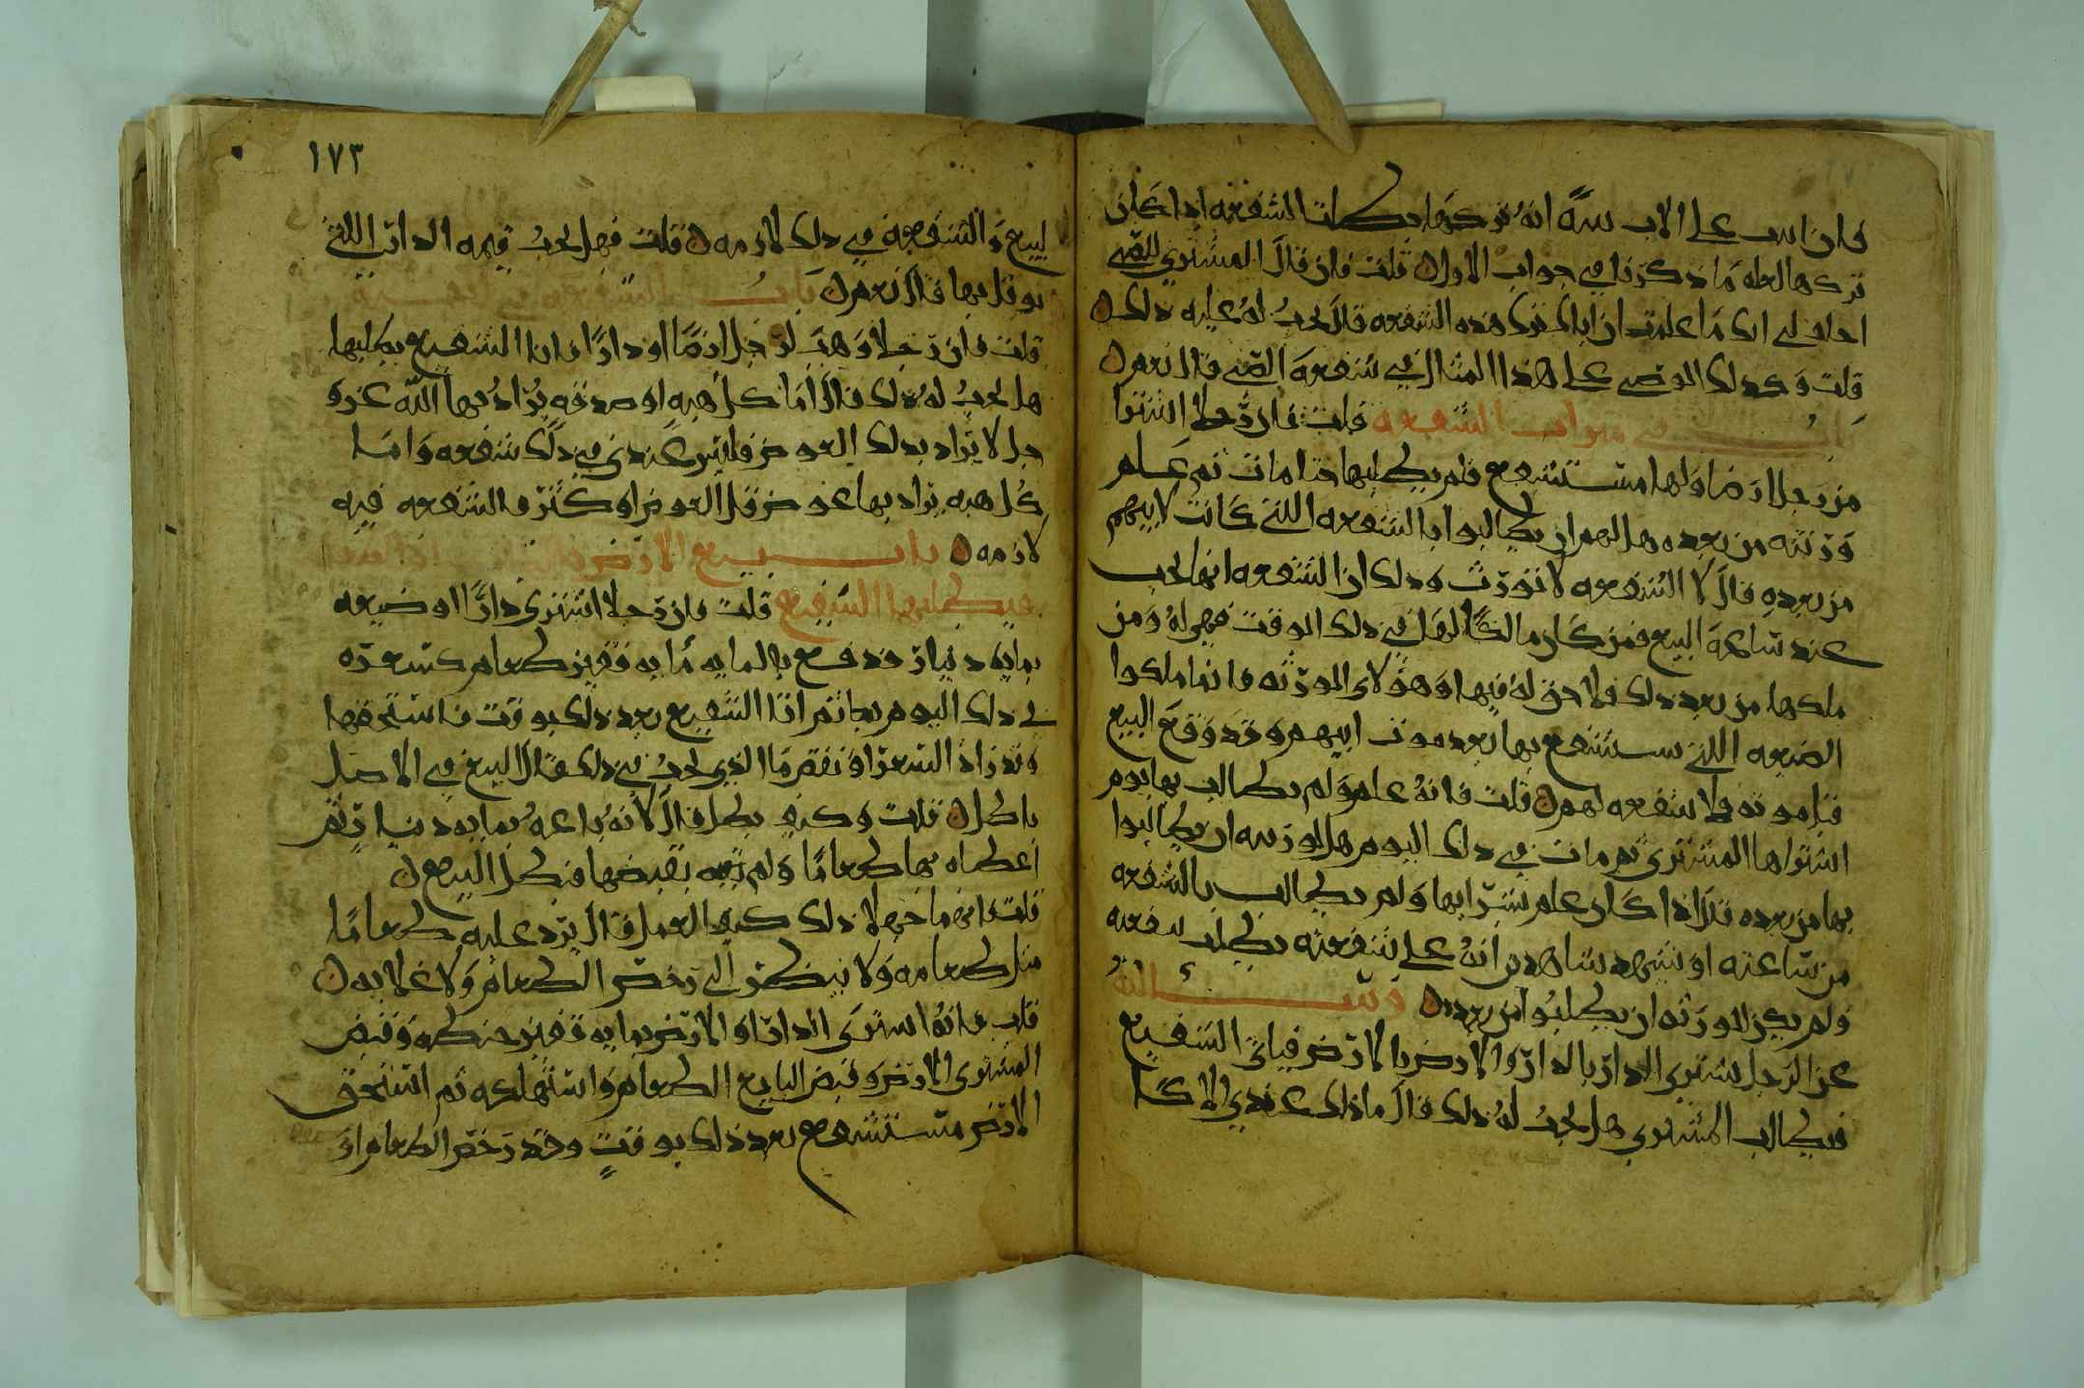 فان اس على الاب سه انه تركها بطلت الشفعه اذا كان
تركها لعله ما ذكرنا في جواب الاول ن قلت فان قال المشتري للصبي
احلف لي انك ما علمت ان اباك ترك هذه الشفعه قال يجب له عليه ذلك ن
قلت وكذلك الوصي على هذا المثال في شفعه الصبي قال نعم ن
باب في مواريث الشفعه قلت فان رجلا اشترا
من رجل ارضا ولها مستشفع فلم يطلبها حتا مات ثم علم
ورثته من بعده هل لهم ان يطالبوا بالشفعه اللتي كانت لابيهم
من بعده قال لا الشفعه لا تورث وذلك ان الشفعه انها تجب
عند ساعه البيع فمن كان مالكا لها في ذلك الوقت فهي له ومن
ملكها من بعد ذلك فلا حق له فيها وهولاى الورثه فانما ملكوا
الضيعه اللتي يستشفع بها بعد موت ابيهم وقد وقع البيع
قبل موته فلا شفعه لهم ن قلت فانه علم ولم يطالب بها يوم
اشتراها المشتري ثم مات في ذلك اليوم هل لورثته ان يطالبوا
بها من بعده قال اذا كان علم بشرايها ولم يطالب بالشفعه
من ساعته او يشهد شاهدين انه على شفعته بطلت شفعته
ولم يكن للورثه ان يطلبوا من بعده ن وسالته
عن الرجل يشتري الدار بالدار والارض بالارض فياتي الشفيع
فيطالب المشتري هل يجب له ذلك قال ما ذلك عندي الا كا
١٧٣
لبيع والشفعه في ذلك لازمه ن قلت فهل يجب قيمه الدار اللتي
بودل بها قال نعم ن باب الشفعه في الهبه
قلت فان رجلا وهب لرجل ارضا او دارا فاتا الشفيع يطلبها
هل يجب له ذلك قال اما كل هبه او صدقه يراد بها الله عز و
جل لا يراد بذلك العوض فليس عندي في ذلك شفعه واما
كل هبه يراد بها عوض قل العوض او كثر فالشفعه فيه
لازمه ن باب بيع الارض
فيطلبها الشفيع قلت فان رجلا اشترى دارا او ضيعه
بمايه دينار فدفع بالمايه مايه قفيز طعام كسعره
في ذلك اليوم بها ثم اتا الشفيع بعد ذلك بوقت فاستحقها
وقد زاد السعر او نقص ما الذي يجب في ذلك قال البيع في الاصل
باطل ن قلت وكيف بطل قال لانه باعه بمايه دينار ثم
اعطاه بها طعاما ولم يقبضها فبطل البيع ن
قلت فانهما جهلا ذلك كيف العمل قال يرد عليه طعاما
مثل طعامه ولا ينظر الى رخص الطعام ولا غلايه ن
قلت فانه اشترى الدار او الارض بمايه قفيز حنطه وقبض
المشتري الارض وقبض البايع الطعام واستهلكه ثم استحق
الارض مستشفع بعد ذلك بوقت وقد رخص الطعام او